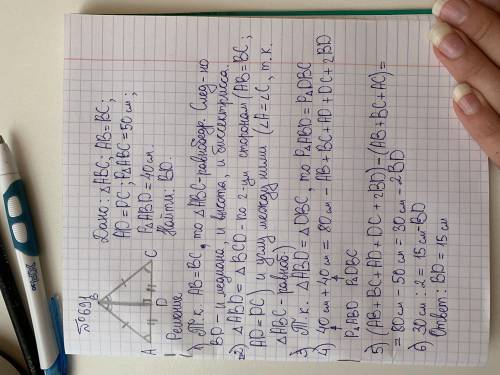 №691
B
A
D
C
Дано: △ABC; AB=BC;
AD=DC; P△ABC=50см;
P△ABD=40см.
Найти: BD.
Решение
1) Т.к. AB=BC, то △ABC-равнобедр. След-но
BD-и медиана, и высота, и биссектриса.
2) △ABD=△BCD-по 2-ум сторонам (AB=BC;
AD=DC) и углу между ними (∠A=∠C, т.к.
△ABC-равноб.)
3) Т.к. △ABD=△DBC, то P△ABD=P△DBC
4) 40см+40см=80см-AB+BC+AD+DC+2BD
P△ABD P△DBC
5) (AB+BC+AD+DC+2BD)-(AB+BC+AC)=
=80см-50см=30см-2BD
6) 30см:2=15см-BD
Ответ: BD=15см